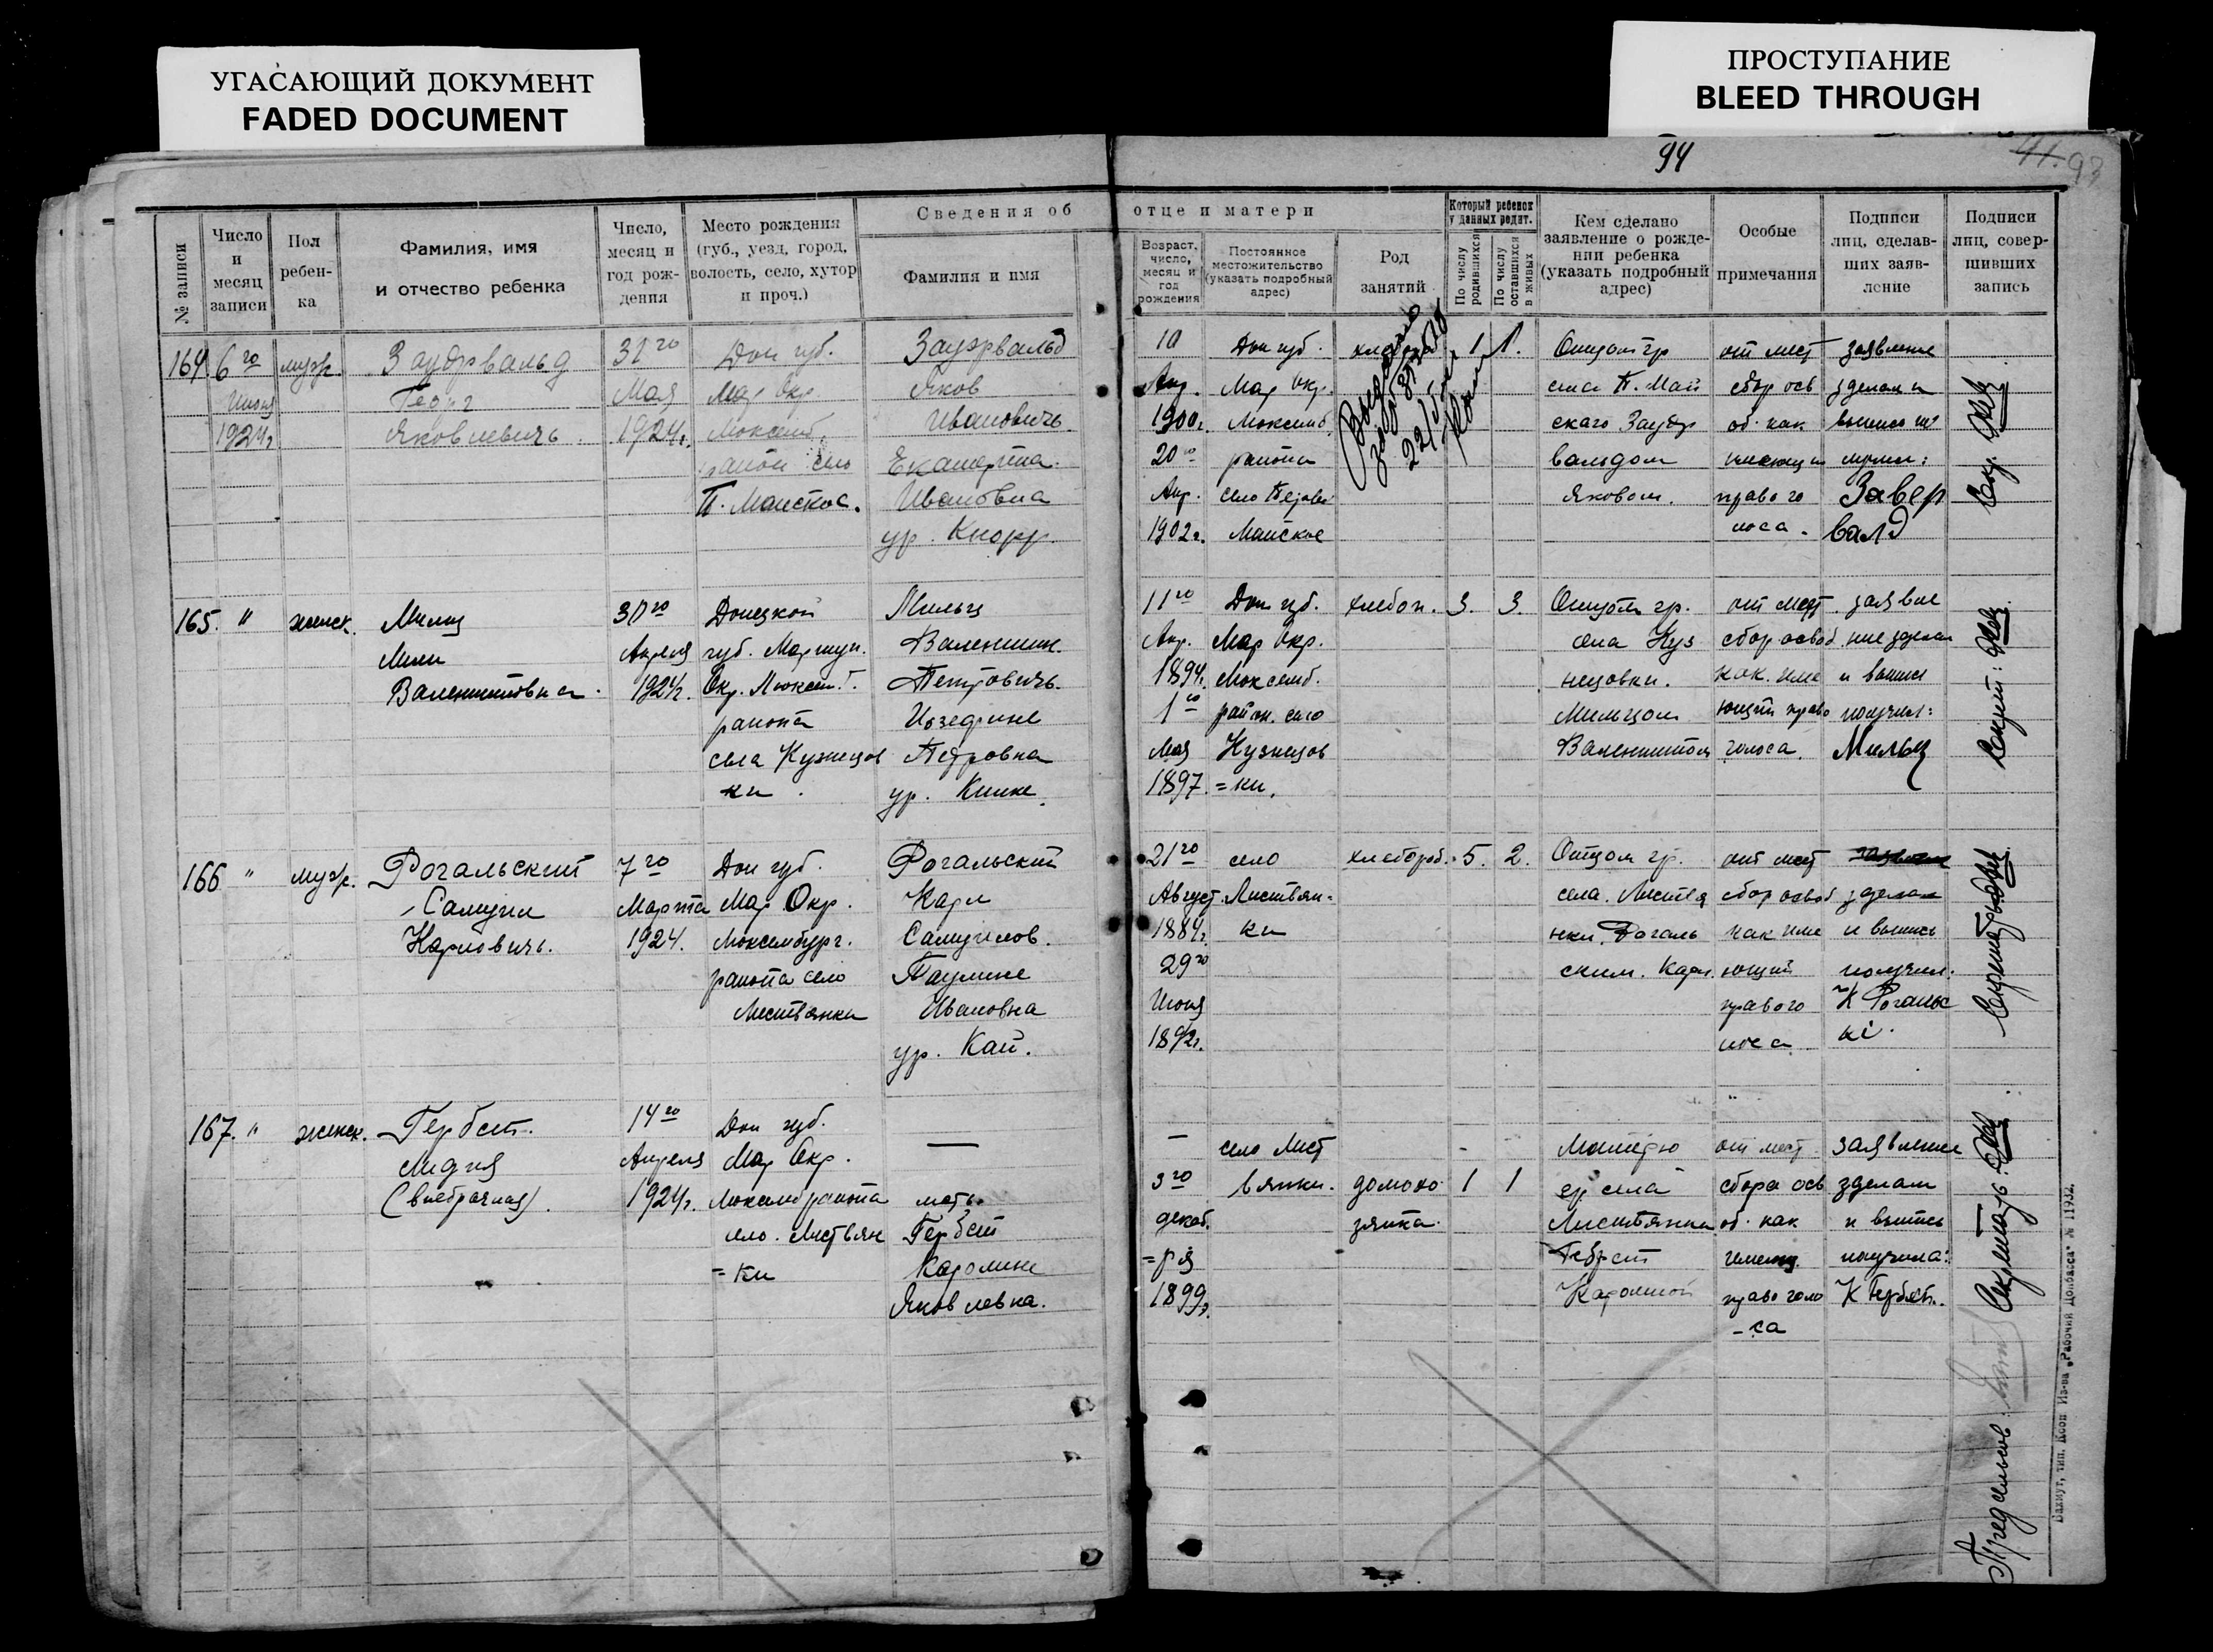 УГАСАЮЩИЙ ДОКУМЕНТ
FADED DOCUMENT
ПРОСТУПАНИЕ
BLEED THROUGH
94
93
№ записи
Число и месяц записи
Пол ребен-ка
Фамилия, имя и отчество ребенка
Число, месяц и год рож-дения
Место рождения (губ., уезд, город, волость, село, хутор и проч.)
Сведения об отце и матери
Фамилия и имя
Возраст, число, месяц и год рождения
Постоянное местожительство (указать подробный адрес)
Род занятий
Который ребенок у данных родит.
По числу родившихся
По числу оставшихся в живых
Кем сделано заявление о рожде-нии ребенка (указать подробный адрес)
Особые примечания
Подписи лиц, сделав-ших заяв-ление
Подписи лиц, совер-шивших запись
164. 6го Июня 1924г
муж.
Заурвальд
Георг
Яковлевичь.
31го
Мая
1924г.
Дон губ.
Мар Окр
Люксемб.
район село
П. Майское.
Заурвальд
Яков
Ивановичь.
Екатерина.
Ивановна
ур. Кнорр.
10
Апр.
1900г.
20го
Апр.
1902г.
Дон губ.
Мар Окр.
Люксемб.
района
село
Майское
1 1.
Отцом гр
села П. Май
скаго Заувр
вальдом
Яковом.
от мест
сбор осв
об. как
имеющи
право го
лоса.
заявление
зделан и
получил:
Завер
валд
22/5
165. "
женск.
Мильц
Лили
Валентиновна.
30го
Апреля
1924г.
Донецкой
губ. Мариуп.
Окр. Люксем.
района
села Кузнецов
ки.
Мильц
Валентин.
Петровичь.
Иозефине
Петровна
ур. Кинке.
11го
Апр.
1894г.
1го
Мая
1897.
Дон губ.
Мар Окр.
Люксемб.
район. село
Кузнецов
=ки.
хлебоп.
3. 3.
Отцом гр.
села Куз
нецовки.
Мильцом
Валентином
от мест.
сбор освоб.
как. име
ющий право
голоса.
заявле
ние зделал
и выпись
получил:
Мильц
166 "
муж.
Рогальский
Самуил
Карловичь.
7го
Марта
1924.
Дон губ.
Мар Окр.
Люксембург.
района село
Листвянки
Рогальский
Карл
Самуилов.
Паулине
Ивановна
ур. Кай.
21го
Август.
1884г.
29го
Июня
1892г.
село
Листвян-
ки
хлебороб.
5. 2.
Отцом гр.
села. Листвя
нки. Рогаль
ским. Карл.
от мест
сбор освоб
как име
ющий
право го
лоса.
зделал
и выпись
получил.
К Рогальс
кі.
167. "
женск.
Гербст.
Лидия
(внебрачная).
14го
Апреля
1924г.
Дон губ.
Мар Окр.
Люксемб района
село. Листвян
=ки
—
мать.
Гербст
Каролине
Яковлевна.
—
3го
декаб.
=ря
1899г.
село Лист
вянки.
домохо
зяйка.
1 1
Матерю
гр. села
Листвянки
Гебрст
Каролиной
от мест.
сбора осв
об. как
имеющ.
право голо
-са
заявление
зделала
и выпись
получила:
К Гербст.
Секр.
Секретарь
Секретарь
Предсельсов.
Бахмут, тип. Кооп Из-ва „Рабочий Донбасса" № 11932.